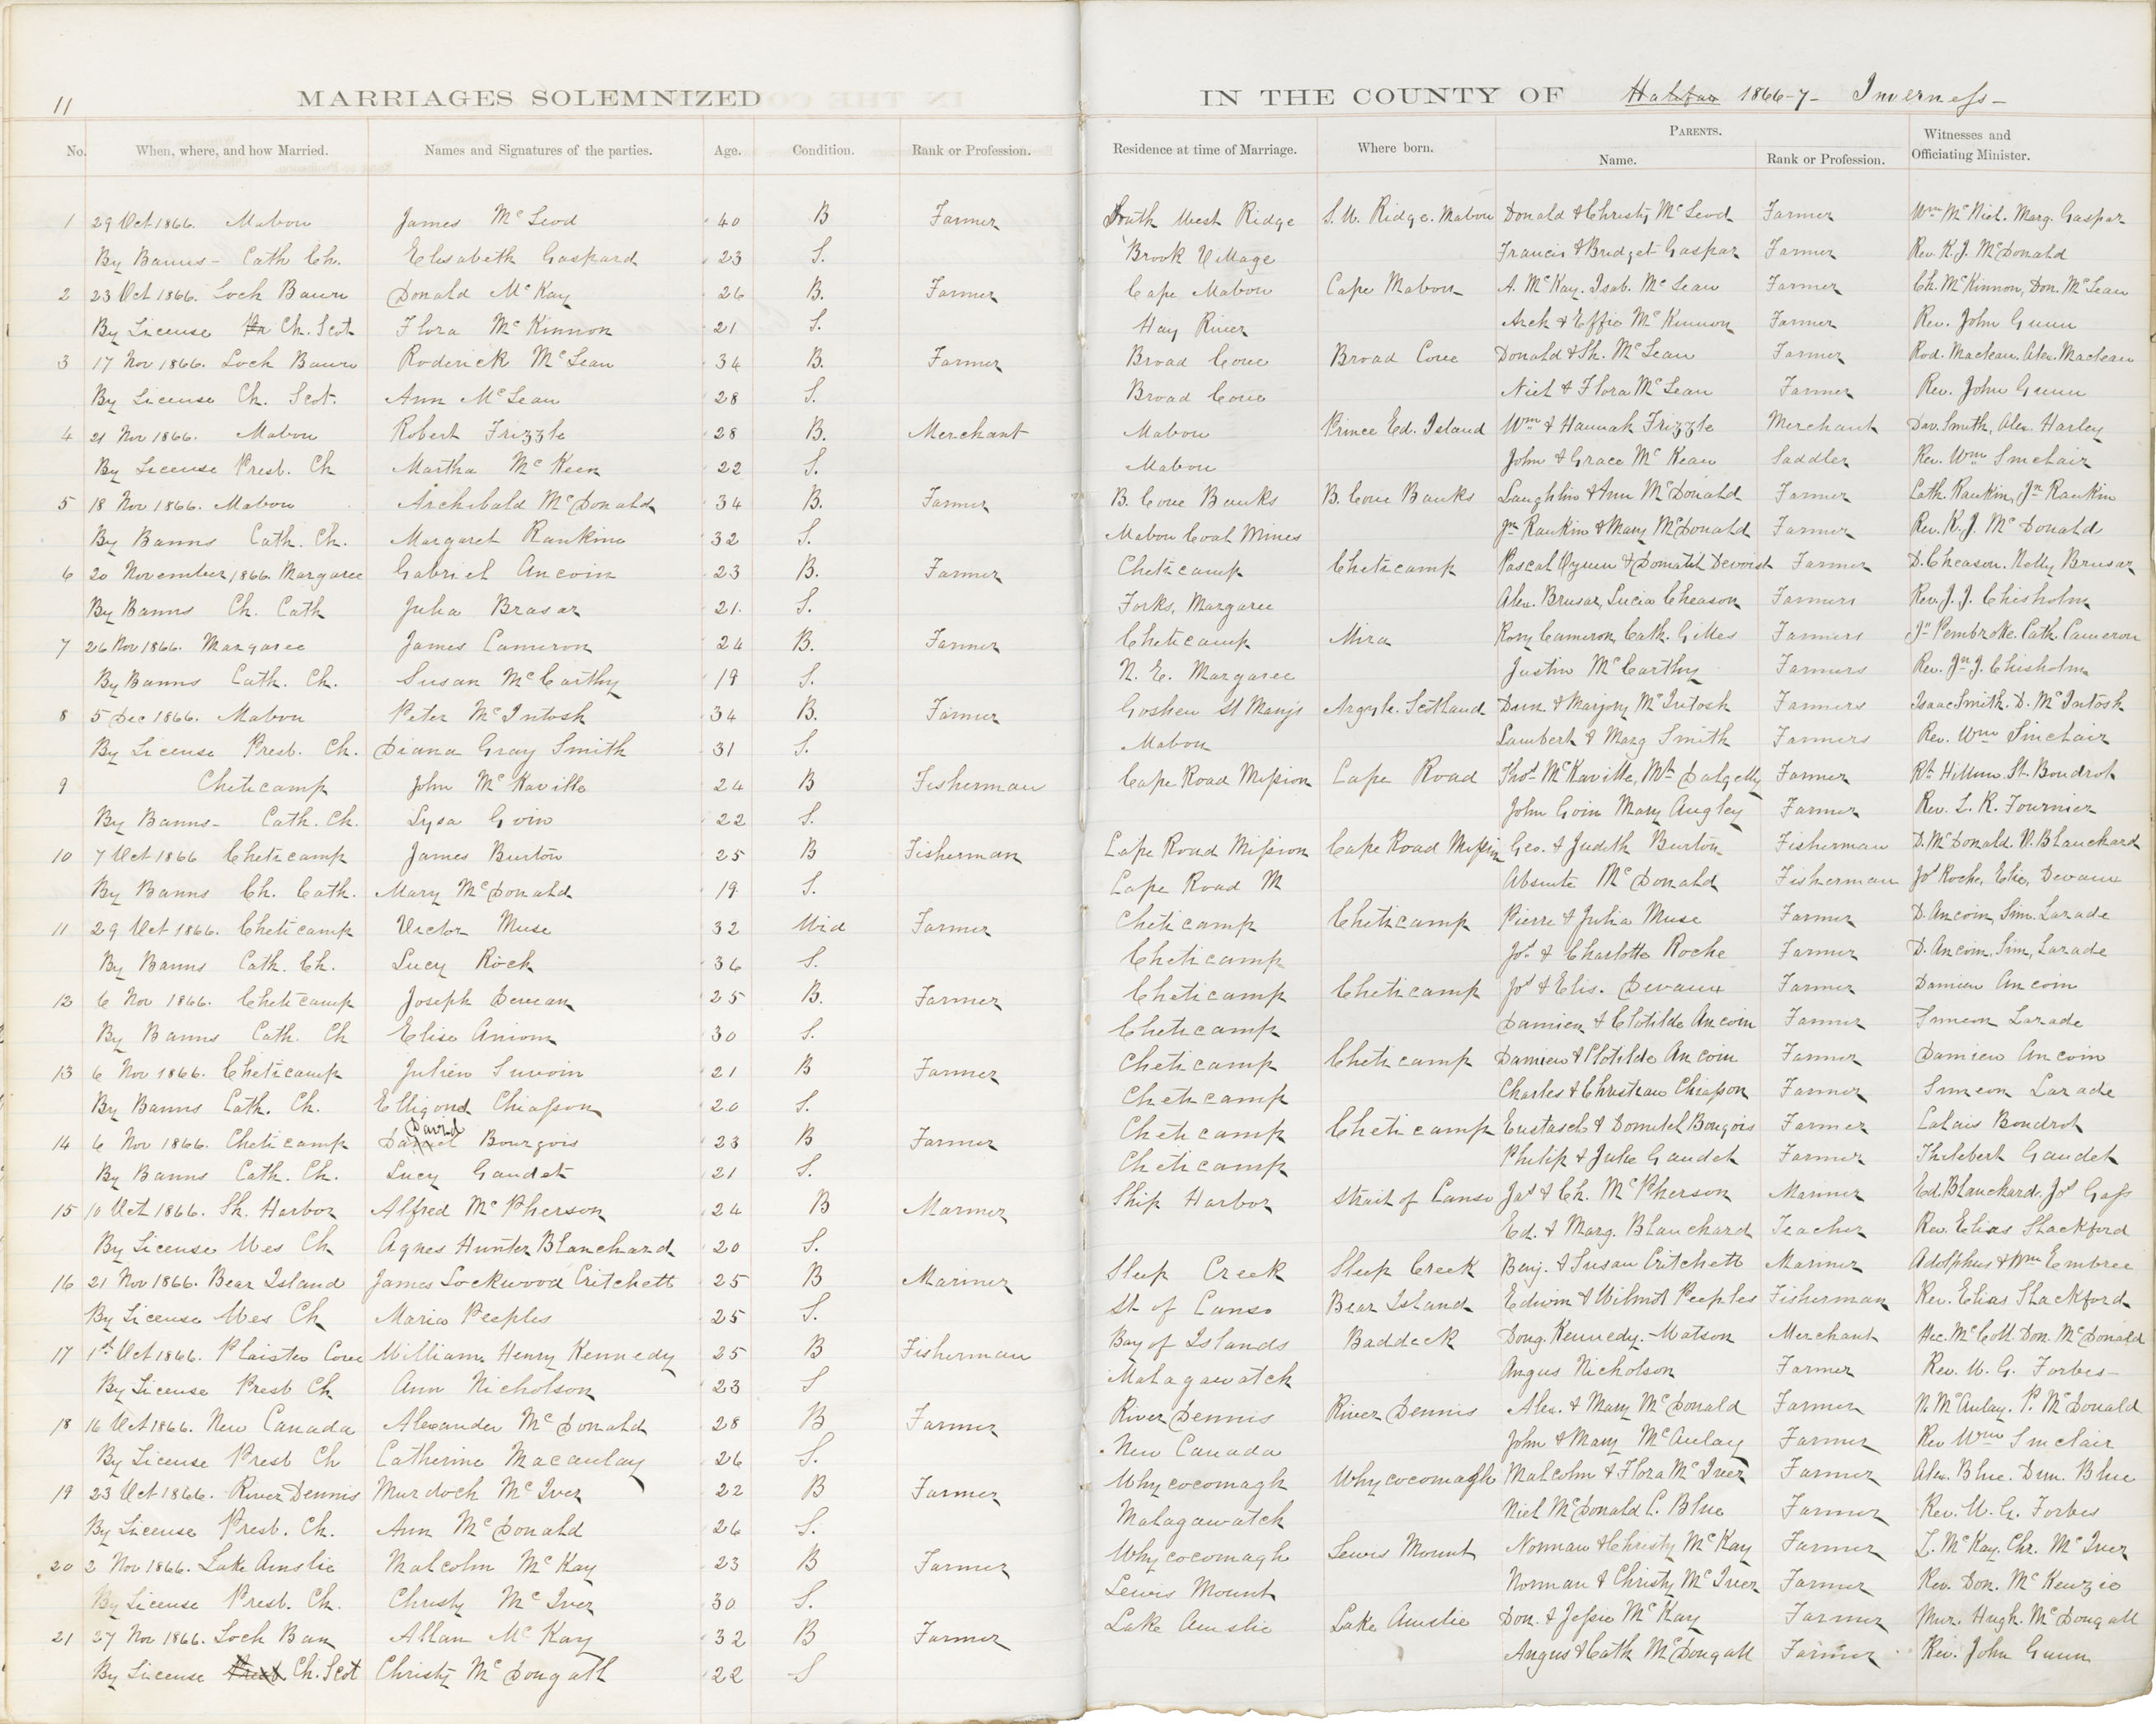 11 MARRIAGES SOLEMNIZED IN THE COUNTY OF Halifax 1866-7- Inverness-
No. When, where, and how Married. Names and Signatures of the parties. Age. Condition. Rank or Profession. Residence at time of Marriage. Where born. PARENTS. Name. Rank or Profession. Witnesses and Officiating Minister.
1 29 Oct 1866. Mabou James McLeod 40 B Farmer South West Ridge S.W. Ridge. Mabou Donald & Christy McLeod Farmer Wm McNiel. Marg. Gaspar
By Banns- Cath Ch. Elisabeth Gaspard 23 S. Brook Village Francis & Bridget Gaspar Farmer Rev. K.J. McDonald
2 23 Oct 1866. Loch Bawn Donald McKay 26 B. Farmer Cape Mabou Cape Mabou- A. McKay. Isab. McLean Farmer Ch. McKinnon, Don. McLean
By License Ch. Scot Flora McKinnon 21 S. Hay River Arch & Effie McKinnon Farmer Rev. John Gunn
3 17 Nov 1866. Loch Bawn Roderick McLean 34 B. Farmer Broad Cove Broad Cove Donald & Sh. McLean Farmer Rod. Maclean. Alex. Maclean
By License Ch. Scot. Ann McLean 28 S. Broad Cove Niel & Flora McLean Farmer Rev. John Gunn
4 21 Nov 1866. Mabou Robert Frizzle 28 B. Merchant Mabou Prince Ed. Island Wm & Hannah Frizzle Merchant Dav. Smith, Alex. Harley
By License Presb. Ch Martha McKeen 22 S. Mabou John & Grace McKean Saddler Rev. Wm Sinclair
5 18 Nov 1866. Mabou Archibald McDonald 34 B. Farmer B. Cove Banks B. Cove Banks Laughlin & Ann McDonald Farmer Cath. Rankin, Jn Rankin
By Banns Cath. Ch. Margaret Rankine 32 S. Mabou Coal Mines Jn Rankin & Mary McDonald Farmer Rev. K.J. McDonald
6 20 November, 1866. Margaree Gabriel Ancoin 23 B. Farmer Cheticamp Cheticamp Pascal & Domatil Farmer D. Cheason. Nelly Brusar
By Banns Ch. Cath Julia Brasar 21. S. Forks, Margaree Alex. Brusar, Lucia Cheason Farmers Rev. J.J. Chisholm
7 26 Nov 1866. Margaree James Cameron 24 B. Farmer Cheticamp Mira Rory Cameron, Cath. Gilles Farmers Jn Pembroke. Cath. Cameron
By Banns Cath. Ch. Susan McCarthy 19 S. N. E. Margaree Justin McCarthy Farmers Rev. Jn J. Chisholm
8 5 Dec 1866. Mabou Peter McIntosh 34 B. Farmer Goshen St Mary's Argyle. Scotland Dun. & Marjory McIntosh Farmers Isaac Smith. D. McIntosh
By License Presb. Ch. Diana Gray Smith 31 S. Mabou Lambert & Marg Smith Farmers Rev. Wm Sinclair
9 Cheticamp John McKaville 24 B Fisherman Cape Road Mission Cape Road Thos McKaville, Mt Dalgetty Farmer St. Boudrot
By Banns- Cath. Ch. Lysa Goin 22 S. John Goin Mary Augley Farmer Rev. L. R. Fournier
10 7 Oct 1866 Cheticamp James Burton 25 B Fisherman Cape Road Mission Cape Road Mission Geo. & Judith Burton Fisherman D. McDonald. V. Blanchard
By Banns Ch. Cath. Mary McDonald 19 S. Cape Road M Absente McDonald Fisherman Jos Roche, Elie, Devaux
11 29 Oct 1866. Cheticamp Victor Muse 32 Wid Farmer Cheticamp Cheticamp Pierre & Julia Muse Farmer D. Ancoin, Sim. Larade
By Banns Cath. Ch. Lucy Rock 36 S. Cheticamp Jos & Charlotte Roche Farmer D. Ancoin, Sim, Larade
12 6 Nov 1866. Cheticamp Joseph Devean 25 B. Farmer Cheticamp Cheticamp Jos & Elis. Devaux Farmer Damien Ancoin
By Banns Cath. Ch Elise Aniom 30 S. Cheticamp Damien & Clotilde Ancoin Farmer Simeon Larade
13 6 Nov 1866. Cheticamp Julien 21 B Farmer Cheticamp Cheticamp Damien & Clotilde Ancoin Farmer Damien Ancoin
By Banns Cath. Ch. Elligond Chiasson 20 S. Cheticamp Charles & Christian Chiasson Farmer Simeon Larade
14 6 Nov 1866. Cheticamp Daniel David Bourgois 23 B Farmer Cheticamp Cheticamp Eustach & Domitel Bougois Farmer Calais Boudrot
By Banns Cath. Ch. Lucy Gaudet 21 S. Cheticamp Philip & Julie Gaudet Farmer Thilebert Gaudet
15 10 Oct 1866. Sh. Harbor Alfred McPherson 24 B Mariner Ship Harbor Strait of Canso Jas & Ch. McPherson Mariner Ed. Blanchard. Jos Goss
By License Wes Ch. Agnes Hunter Blanchard 20 S. Ed. & Marg. Blanchard Teacher Rev. Elias Stackford
16 21 Nov 1866. Bear Island James Lockwood Critchett 25 B Mariner Steep Creek Steep Creek Benj. & Susan Critchett Mariner Adolphus & Wm Embree
By License Wes Ch Maria Peeples 25 S. St of Canso Bear Island Edwin & Wilmot Peeples Fisherman Rev. Elias Stackford
17 1st Oct 1866. Plaister Cove William Henry Kennedy 25 B Fisherman Bay of Islands Baddeck Doug. Kennedy.-Watson Merchant Hec. McColl Don. McDonald
By License Presb Ch Ann Nicholson 23 S Malagawatch Angus Nicholson Farmer Rev. W. G. Forbes-
18 16 Oct 1866. New Canada Alexander McDonald 28 B Farmer River Dennis River Dennis Alex. & Mary McDonald Farmer N. McAulay. P. McDonald
By License Presb Ch Catherine Macaulay 26 S. New Canada John & Mary McAulay Farmer Rev Wm Sinclair
19 23 Oct 1866. River Dennis Murdoch McIver 22 B Farmer Whycocomagh Whycocomagh Malcolm & Flora McIver Farmer Alex. Blue. Dun. Blue
By License Presb. Ch. Ann McDonald 26 S. Malagawatch Niel McDonald C. Blue Farmer Rev. W. G. Forbes
20 2 Nov 1866. Lake Amslie Malcolm McKay 23 B Farmer Whycocomagh Lewis Mount Norman & Christy McKay Farmer L. McKay. Chr. McIver
By License Presb. Ch. Christy McIver 30 S. Lewis Mount Norman & Christy McIver Farmer Rev. Don. McKenzie
21 27 Nov 1866. Loch Ban Allan McKay 32 B Farmer Lake Amslie Lake Amslie Don. & Jessie McKay Farmer Mur. Hugh. McDougall
By License Presb Ch. Scot Christy McDougall 22 S Angus & Cath McDougall Farmer Rev. John Gunn